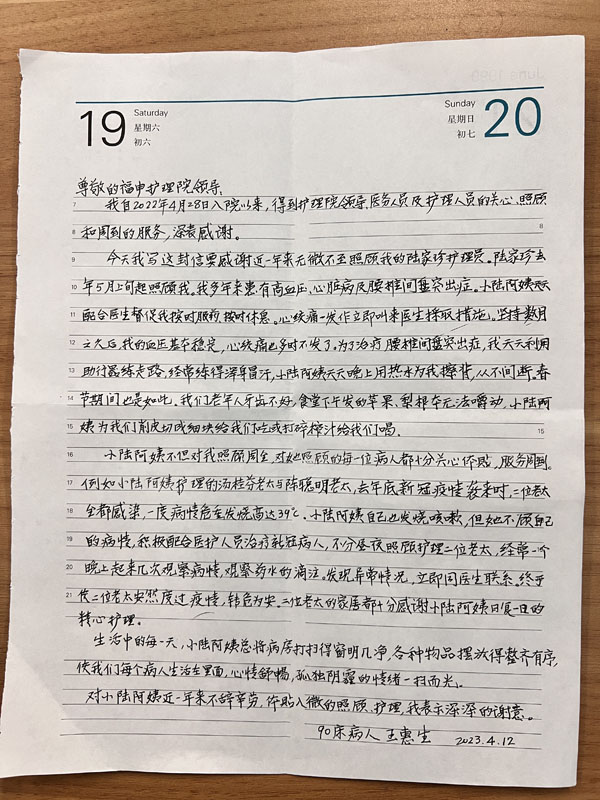 June 1999
19 Saturday 星期六 初六
Sunday 星期日 初七 20
尊敬的福申护理院领导,
7 我自2022年4月28日入院以来，得到护理院领导、医务人员及护理人员的关心、照顾
8 和周到的服务，深表感谢。 8
9 今天我写这封信要感谢近一年来无微不至照顾我的陆家珍护理员。陆家珍去
10 年5月上旬起照顾我。我多年来患有高血压、心脏病及腰椎间盘突出症。小陆阿姨天天
11 配合医生督促我按时服药，按时休息。心绞痛一发作立即叫来医生採取措施。坚持数月
12 之久后，我的血压基本稳定，心绞痛也多时不发了。为了治疗腰椎间盘突出症，我天天利用
13 助行器练走路，经常练得浑身冒汗，小陆阿姨天天晚上用热水为我擦背，从不间断。春
14 节期间也是如此。我们老年人牙齿不好，食堂下午发的苹果、梨根本无法嚼动，小陆阿
15 姨为我们削皮切成细块给我们吃或打碎榨汁给我们喝。 15
16 小陆阿姨不但对我照顾周全，对她照顾的每一位病人都十分关心体贴，服务周到。
17 例如小陆阿姨护理的汤桂芬老太与陈聪明老太，去年底新冠疫情袭来时，二位老太
18 全都感染，一度病情危重发烧高达39℃。小陆阿姨自己也发烧咳嗽，但她不顾自己
19 的病情，积极配合医护人员治疗新冠病人，不分昼夜照顾护理二位老太，经常一个
20 晚上起来几次观察病情，观察药水的滴注。发现异常情况，立即同医生联系。终于
21 使二位老太安然度过疫情，转危为安。二位老太的家属都十分感谢小陆阿姨日复一日的
精心护理。
生活中的每一天，小陆阿姨总将病房打扫得窗明几净，各种物品摆放得整齐有序，
使我们每个病人生活在里面，心情舒畅，孤独阴霾的情绪一扫而光。
对小陆阿姨近一年来不辞辛劳，体贴入微的照顾、护理，我表示深深的谢意。
90床病人 王惠生 2023.4.12